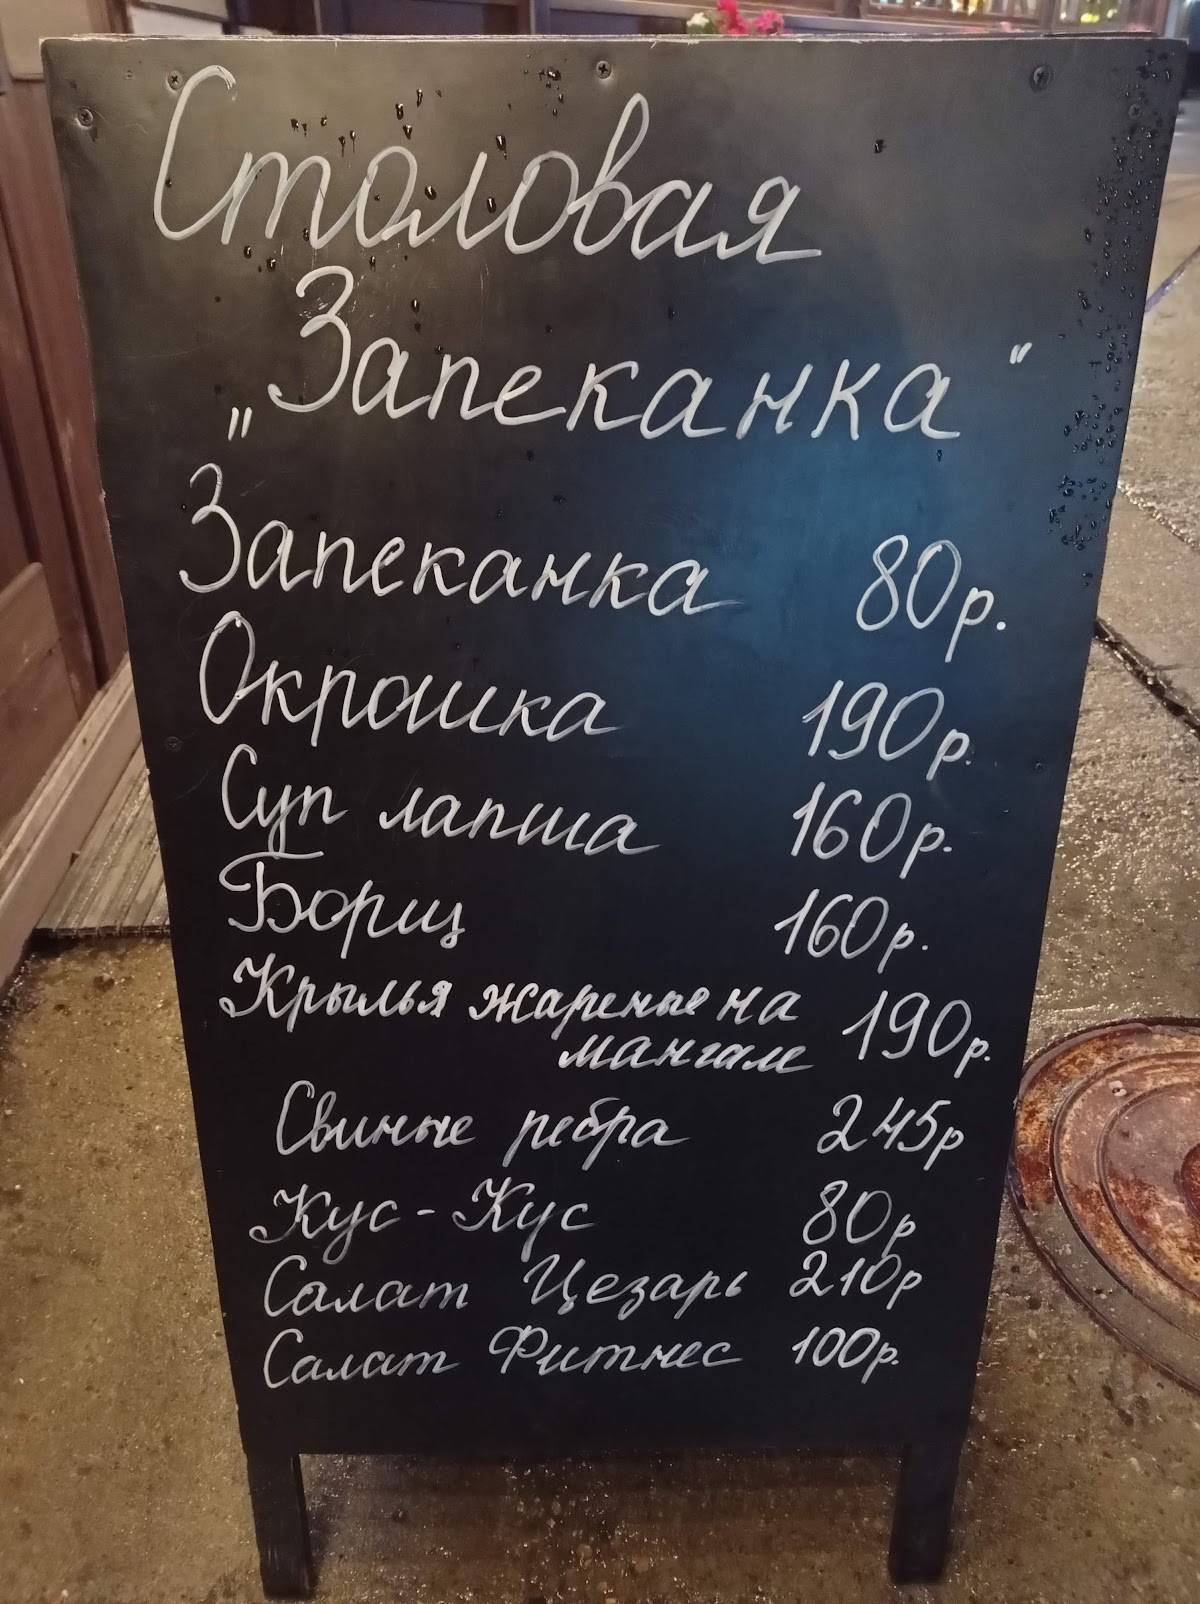 Столовая
„Запеканка"
Запеканка 80р.
Окрошка 190р.
Суп лапша 160р.
Борщ 160р.
Крылья жареные на
мангале 190р.
Свиные ребра 245р
Кус-Кус 80р
Салат Цезарь 210р
Салат Фитнес 100р.